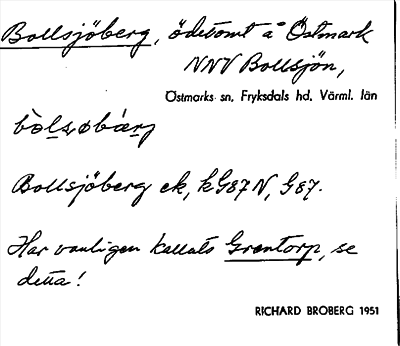 Bollsjöberg, ödetomt å Östmark
NNV Bollsjön,
Östmarks sn, Fryksdals hd, Värml. län
Bollsjöberg ek, kG87N, G87.
Har vanligen kallats Grentorp, se
detta!
RICHARD BROBERG 1951